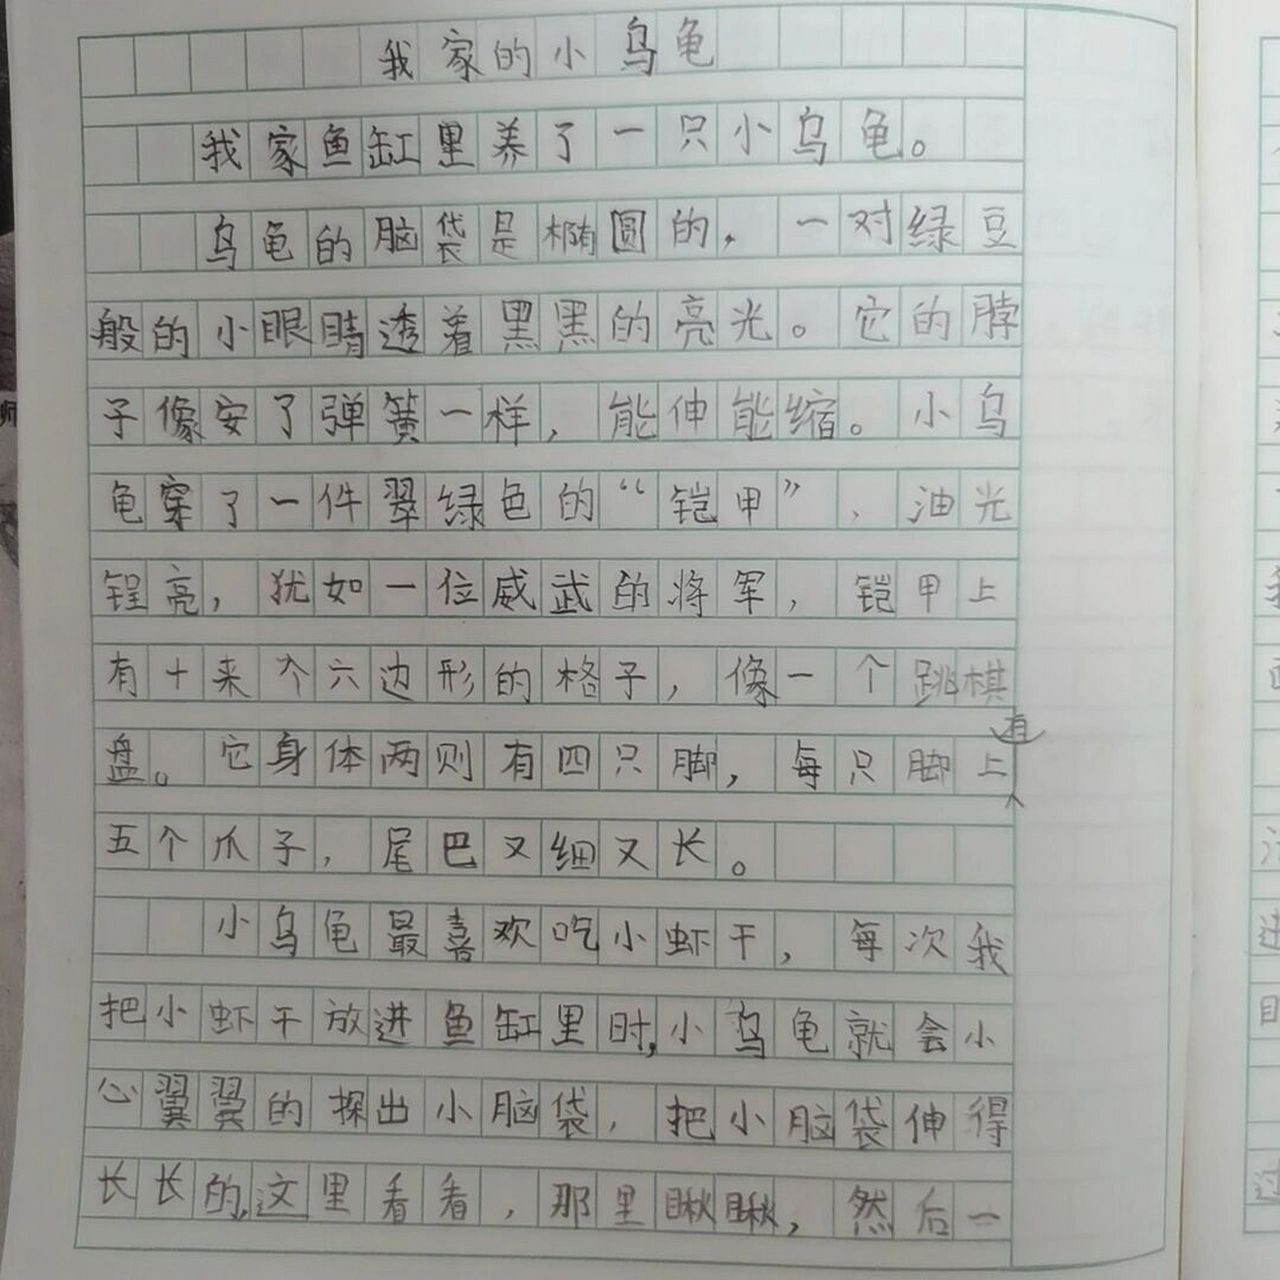 我家的小乌龟
我家鱼缸里养了一只小乌龟。
乌龟的脑袋是椭圆的，一对绿豆
般的小眼睛透着黑黑的亮光。它的脖
子像安了弹簧一样，能伸能缩。小乌
龟穿了一件翠绿色的“铠甲”，油光
锃亮，犹如一位威武的将军，铠甲上
有十来个六边形的格子，像一个跳棋
盘。它身体两则有四只脚，每只脚上有
五个爪子，尾巴又细又长。
小乌龟最喜欢吃小虾干，每次我
把小虾干放进鱼缸里时，小乌龟就会小
心翼翼的探出小脑袋，把小脑袋伸得
长长的，这里看看，那里瞅瞅，然后一